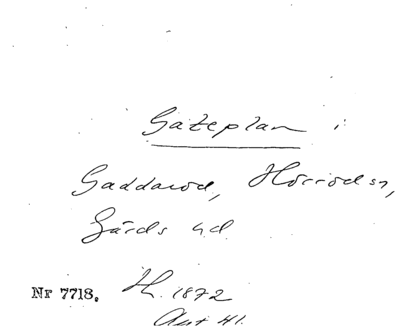 Gateplan i
Gaddarod, Hörröds sn,
Gärds hd
Nr 7718. H. 1872
Aut 41.